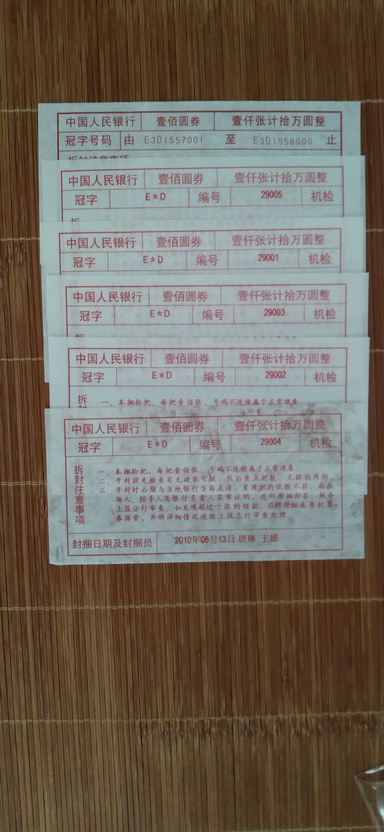 中国人民银行 壹佰圆券 壹仟张计拾万圆整
冠字号码 由 E3D1557001 至 E3D1558000 止
拆封注意事项
中国人民银行 壹佰圆券 壹仟张计拾万圆整
冠字 E★D 编号 29005 机检
中国人民银行 壹佰圆券 壹仟张计拾万圆整
冠字 E★D 编号 29001 机检
中国人民银行 壹佰圆券 壹仟张计拾万圆整
冠字 E★D 编号 29003 机检
中国人民银行 壹佰圆券 壹仟张计拾万圆整
冠字 E★D 编号 29002 机检
拆 一、本捆拾把，每把壹佰张，号码不连续属于正常现象
中国人民银行 壹佰圆券 壹仟张计拾万圆整
冠字 E★D 编号 29004 机检
拆封注意事项
一、本捆拾把，每把壹佰张，号码不连续属于正常现象。
二、开封前先检查有无破散可疑，然后查点把数，
三、开封时必须与当地银行当面点清，发现把内张数不符，由在
场人、经手人及银行负责人签章证明，连同原捆封签，
上报分行审查，如发现超过十张的错款，应将原捆或原把
券保管，并将详细情况逐级上报总行审查处理。
封捆日期及封捆员 2010年08月13日 唐琳